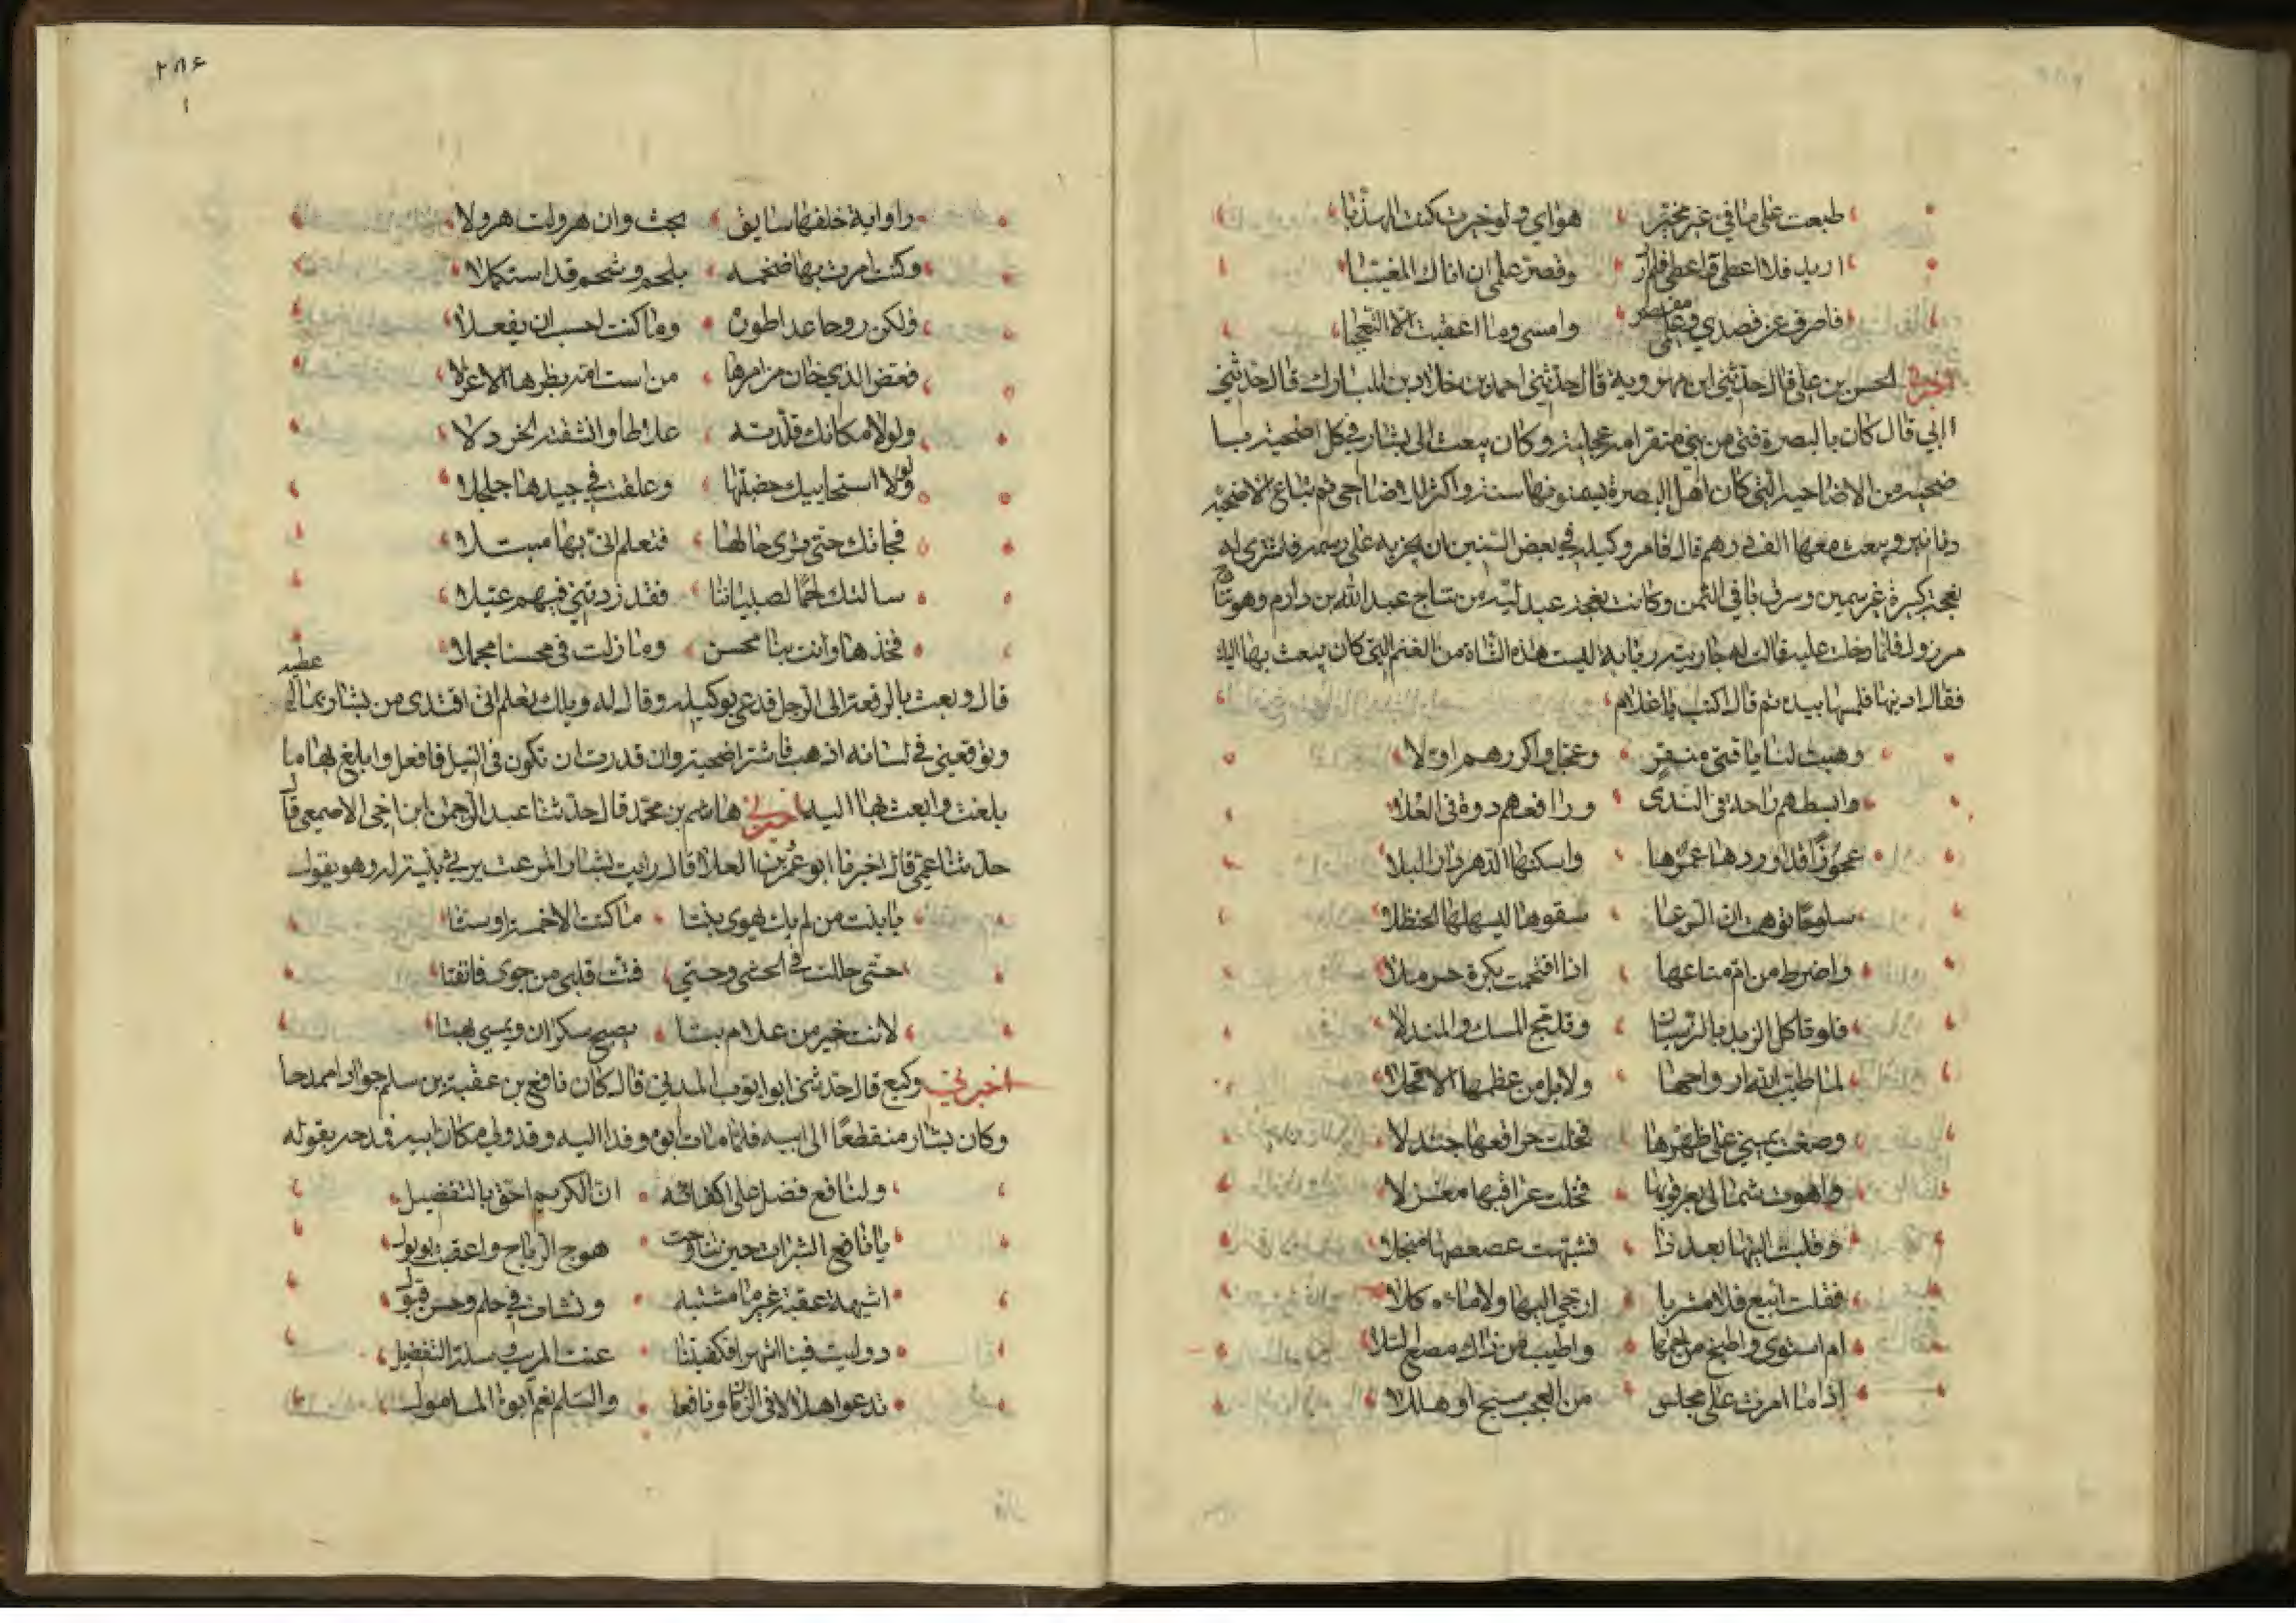 طبعت على ما في غير مخير هواي ولو خيرت كنت المهذبا
اريد فلا اعطى واعطى فلم ارد وقصر علمي ان انال المغيبا
فاصرف عن قصدي وعلمي مقصر وامسي وما اعقبت الا التعجبا
اخبرني الحسن بن علي قال حدثني ابن مهرويه قال حدثني احمد بن خلاد بن المبارك قال حدثني
ابي قال كان بالبصرة فتى من بني منقر امه عجلية وكان يبعث الى بشار في كل اضحية
ضحية من الاضاحي التي كان اهل البصرة يسمنونها سنة واكثر للاضاحي ثم تباع الاضحية
دنانير ويبعث معها الف درهم قال فامر وكيله في بعض السنين ان يجريه على رسمه فاشترى له
نعجة كبيرة غير سمين وسرق باقي الثمن وكانت نعجة عبدلية من نتاج عبد الله بن دارم وهو نتاج
مرذول فلما دخلت عليه قالت له جاريته ربابة ليست هذه الشاة من الغنم التي كان يبعث بها اليك
فقال ادنيها فلمسها بيده ثم قال اكتب يا غلام
وهبت لنا يا فتى منقر وعجل واكرمهم اولا
وابسطهم راحة في الندى وارفعهم ذروة في العلا
عجوزا قد اوردها عمرها واسكنها الدهر دار البلا
سلوحا توهمت ان الرعا سقوها ليسهلها الحنظلا
واضرط من ام مبتاعها اذا اقتحمت بكرة حرملا
فلو تاكل الزبد بالنرسيان وتدمج المسك والمندلا
لما طيب الله ارواحها ولا بل من عظمها الاقحلا
وضعت يميني على ظهرها فخلت حراقفها جندلا
واهوت شمالي لعرقوبها فخلت عراقيبها مغزلا
وقلبت اليتها بعد ذا فشبهت عصعصها منجلا
فقلت ابيع فلا مشربا ارجي اليها ولا ماكلا
ام اشوي واطبخ من لحمها واطيب من ذاك مضغ السلا
اذا ما امرت على مجلس من العجب سبح او هللا
٢٨٦
راوا اية خلفها سايق يحث وان هرولت هرولا
وكنت امرت بها ضخمة بلحم وشحم قد استكملا
ولكن روحا عدا طوره وما كنت احسب ان يفعلا
فعض الذي خان من امرها من است امه بظرها الاغرلا
ولولا مكانك قلدته علاطا وانشقته الخردلا
ولولا استحاييك خضبتها وعلقت في جيدها جلجلا
فجاتك حتى ترى حالها فتعلم اني بها مبتلا
سالتك لحما لصبياننا فقد زدتني فيهم عيلا
فخذها وانت بنا محسن وما زلت في محسنا مجملا
قال وبعث بالرقعة الى الرجل فدعى بوكيله وقال له ويلك تعلم اني افتدى من بشار بما اعطيه
وتوقعني في لسانه اذهب فاشتر اضحية وان قدرت ان تكون في الفيل فافعل وابلغ بها ما
بلغت وابعث بها اليه اخبرني هاشم بن محمد قال حدثنا عبد الرحمن ابن اخي الاصمعي قال
حدثنا عمي قال اخبرنا ابو عمر بن العلا قال رايت بشار المرعث يرثي بنية له وهو يقول
يا بنت من لم يك يهوى بنتا ما كنت الا خمسة او ستا
حتى حللت في الحشى وحتي فتت قلبي من جوى فانفتا
لانت خير من غلام بتا يصبح سكران ويمسي بهتا
اخبرني وكيع قال حدثني ابو ايوب المديني قال كان نافع بن عقبة بن سلم جوادا ممدحا
وكان بشار منقطعا الى ابيه فلما مات ابوه وفد اليه وقد ولي مكان ابيه فمدحه بقوله
ولنافع فضل على اكفائه ان الكريم احق بالتفضيل
يا نافع الشبرات حين تناوحت هوج الرياح واعقبت بوبول
اشبهت عقبة غير ما متشبه ونشات في حلم وحسن قبول
ووليت فينا اشهرا فكفيتنا عنت المريب وسلة التضليل
تدعو هلالا في الزمان ونافعا والسلم نعم ابوة المامول